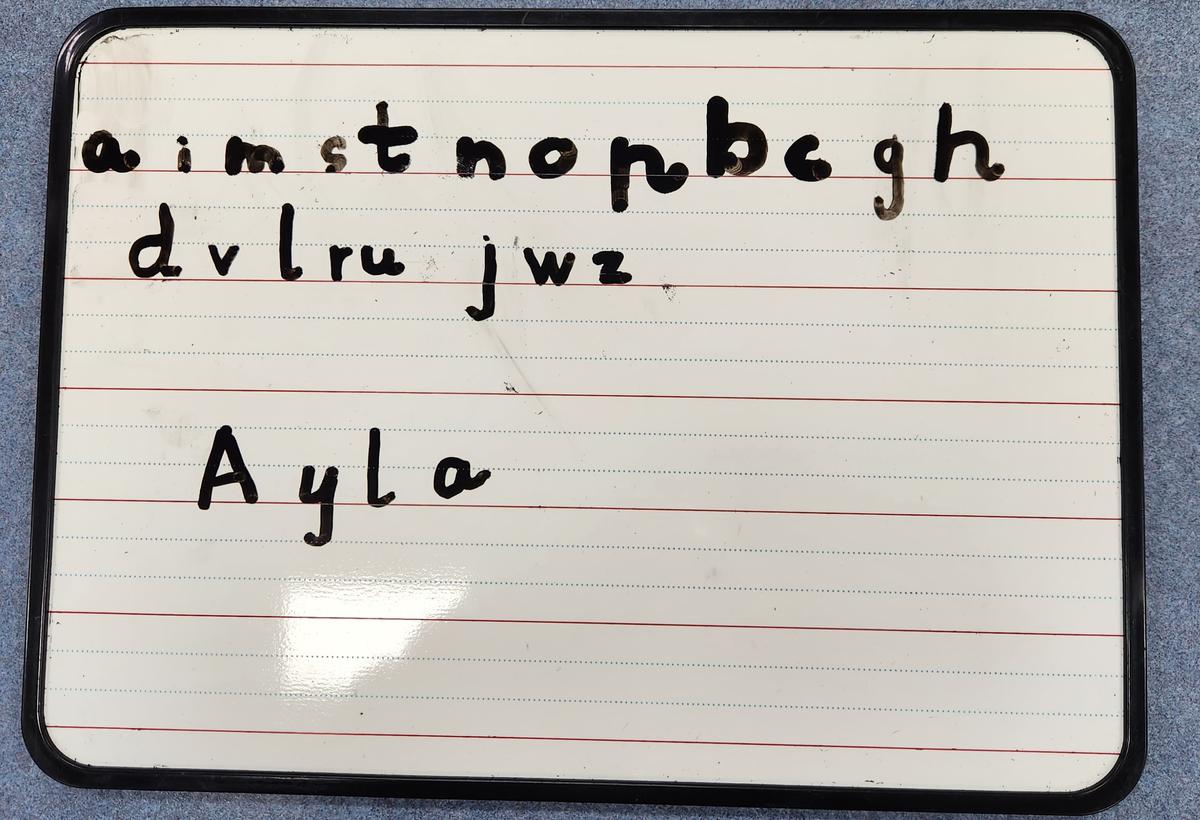 a i m s t n o p b c g h
d v l r u j w z
A y l a